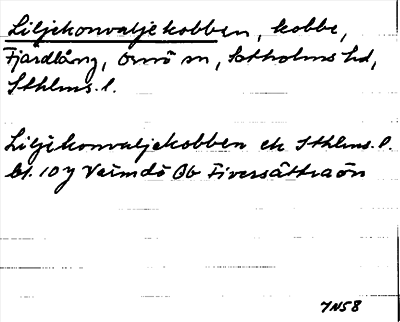 Liljekonvaljekobben, kobbe,
Fjärdlång, Ornö sn, Sotholms hd,
Sthlms. l.
Liljekonvaljekobben ek Sthlms. l.
bl. 10 y Värmdö Ob Fiversättraön
7N58